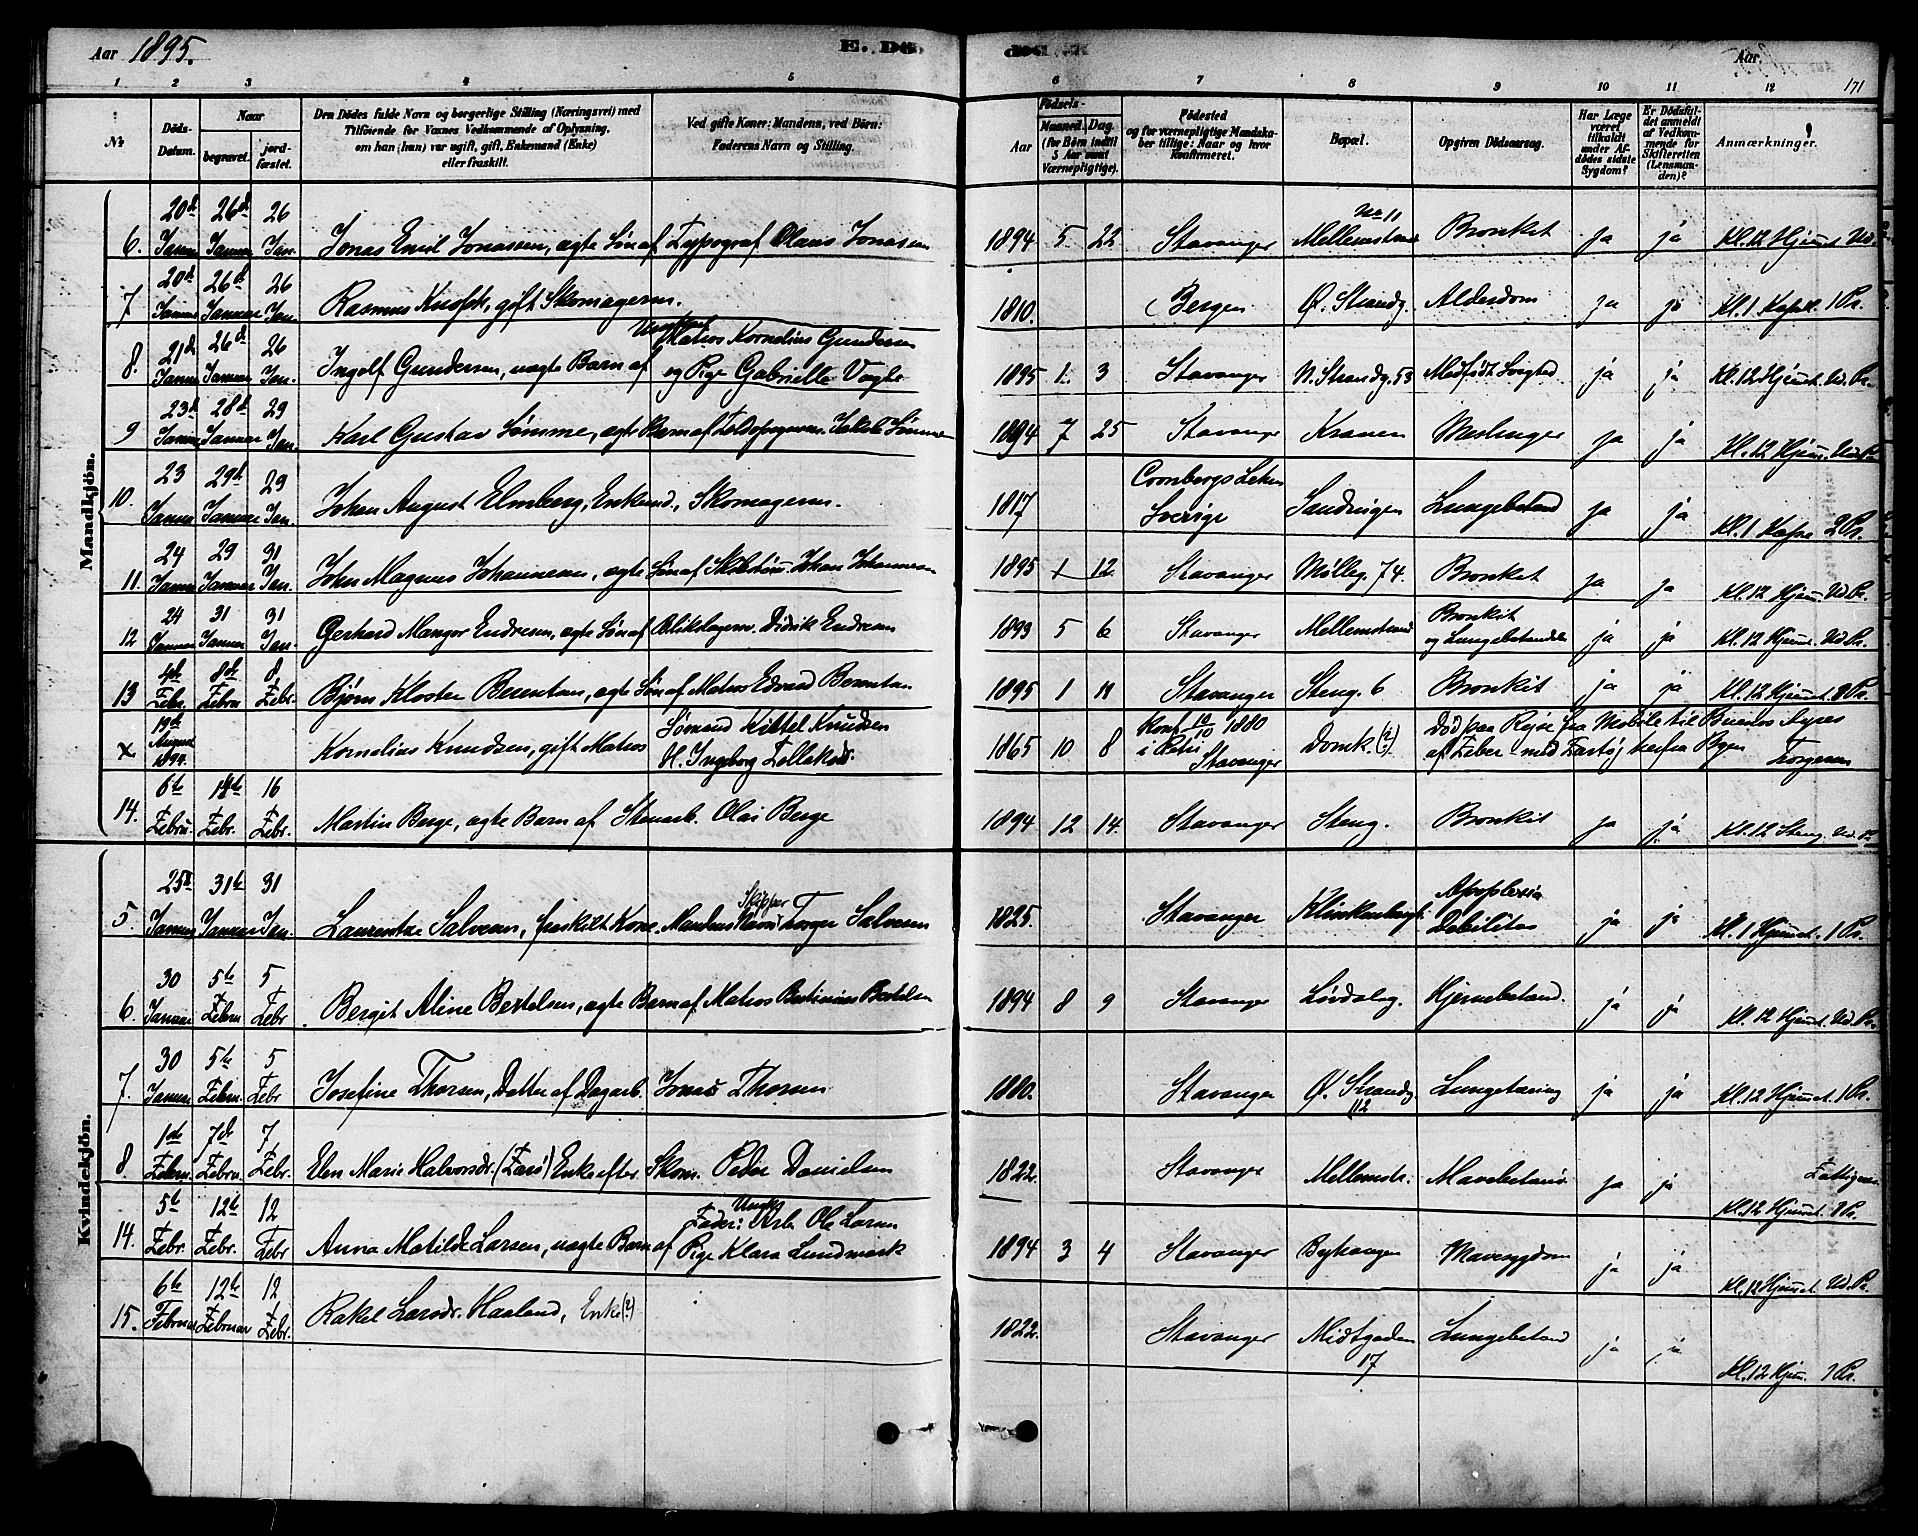 Aar 1895. E. Dö
1 2 3 4 5
№ Döds-Datum. Naar begravet. jordfæstet. Den Dödes fulde Navn og borgerlige Stilling (Næringsvei) med Tilföiende for Voxnes Vedkommende af Oplysning, om han (hun) var ugift, gift, Enkemand (Enke) eller fraskilt. Ved gifte Koner: Mandens, ved Börn: Faderens Navn og Stilling.
Aar. 171
6 7 8 9 10 11 12
Födsels- Aar Maaned. Dag. (for Börn indtil 5 Aar samt Værnepligtige). Födested og for værnepligtige Mandskaber tillige: Naar og hvor Konfirmeret. Bopæl. Opgiven Dödsaarsag. Har Læge været tilkaldt under Afdödes sidste Sygdom? Er Dödsfaldet anmeldt af Vedkommende for Skifteretten (Lensmanden)? Anmærkninger.
Mandkjön.
6. 20d Januar 26d Januar 26 Jan. Jonas Emil Jonassen, ægte Søn af Typograf Olaus Jonassen 1894 5 22 Stavanger No 11 Mellemstrand Bronkit ja ja Kl. 12 Hjemmet Ud.
7 20d Januar 26d Januar 26 Jan. Rasmus Knoph, gift Skomagersv. 1810. Bergen Ø. Strandg. Alderdom ja ja Kl. 1 Kapel. 1 Pr.
8. 21d Januar 26d Januar 26 Jan. Ingolf Gundersen, uægte Barn af Matros Kornelius Gundersen og Pige Gabrielle Vagle 1895 1. 3 Stavanger N. Strandg. 53 Medfødt Svaghed ja ja Kl. 12 Hjemmet. Ud. Pr.
9 23d Januar 28d Januar 29 Jan. Karl Gustav Sømme, ægte Barn af Toldopsynsm. Jakob Sømme 1894 7 25 Stavanger Kranen Meslinger ja ja Kl. 12 Hjem. Ud. Pr.
10. 23 Januar 29d Januar 29 Jan. Johan August Elmberg, Enkemd., Skomagersv. 1817 Cronbergs Lehn Sverige Sandvigen Lungebetænd ja ja Kl. 1 Kapel 2 Pr.
11. 24 Januar 29 Januar 31 Jan. John Magnus Johannessen, ægte Søn af Skibstøm. Johan Johannessen 1895 1 12. Stavanger Mølleg. 74. Bronkit ja ja Kl. 12 Hjem. Ud. Pr.
12 24 Januar 31 Januar 31 Jan. Gerhard Mangor Endresen, ægte Søn af Blikslagersv. Didrik Endresen 1893 5 6 Stavanger Mellemstrand Bronkit og Lungebetændelse ja ja Kl. 12 Hjem. Ud. Pr.
13 4de Febr. 8de Febru 8. Febr. Bjørn Kloster Berentsen, ægte Søn af Matros Edvard Berentsen 1895 1 11 Stavanger Steng. 6 Bronkit ja ja Kl. 12 Hjemmet. 2 Pr.
x 19de August 1894. Kornelius Knudsen, gift Matros Sømand Kittel Knudsen H. Ingeborg Tollaksdr. 1865 10 8 Konf. 10/10 1880 i Petri Stavanger Domk. (?) Død paa Rejse fra Mobile til Buenos Ayres af Feber – med Fartøj herfra Byen Torgersen
14. 6te Febru. 14de Febr. 16 Febr. Martin Berge, ægte Barn af Stenarb. Olai Berge 1894 12 14. Stavanger Steng. Bronkit ja ja Kl. 12 Steng. Ud. Pr.
Kvindekjön.
5. 25d Januar 31te Januar 31 Jan. Laurentze Salvesen, fraskilt Kone. Mandens Navn Skipper Torger Salvesen 1825. Stavanger Klinkenbergt. Apoplexia Debilitas ja ja Kl. 1 Hjemmet. 1 Pr.
6. 30 Januar 5te Febru 5 Febr Bergit Aline Bertelsen, ægte Barn af Matros Bertinius Bertelsen 1894 8 9 Stavanger Løvdalsg. Hjernebetænd. ja ja Kl. 12 Hjemmet. Ud. Pr.
7. 30 Januar 5te Febru. 5 Febr Josefine Thorsen, Datter af Dagarb. Jonas Thorsen 1880. Stavanger Ø. Strandg. 112 Lungetæring ja ja Kl. 12 Hjemmet. 1 Pr.
8 1ste Febru. 7de Febru. 7 Febr. Elen Marie Halvorsdr. (Farø) Enke efter Skom. Peder Danielsen 1822. Stavanger Mellemstr. Mavebetænd ja ja Fattigvæsen Kl. 12 Hjemmet. 2 Pr.
14. 5te Febr. 12te Febr. 12 Febr Anna Matilde Larsen, uægte Barn af Fader: Ungk. Arb. Ole Larsen Pige Klara Lundmark 1894 3 4 Stavanger Byhaugen Mavesygdom ja ja Kl. 12 Hjemmet. Ud. Pr.
15. 6te Februar 12te Februar 12 Febr. Rakel Larsdr. Haaland, Enke (?) 1822. Stavanger Midtgaden 17 Lungebetænd ja ja Kl. 12 Hjem. 1 Pr.